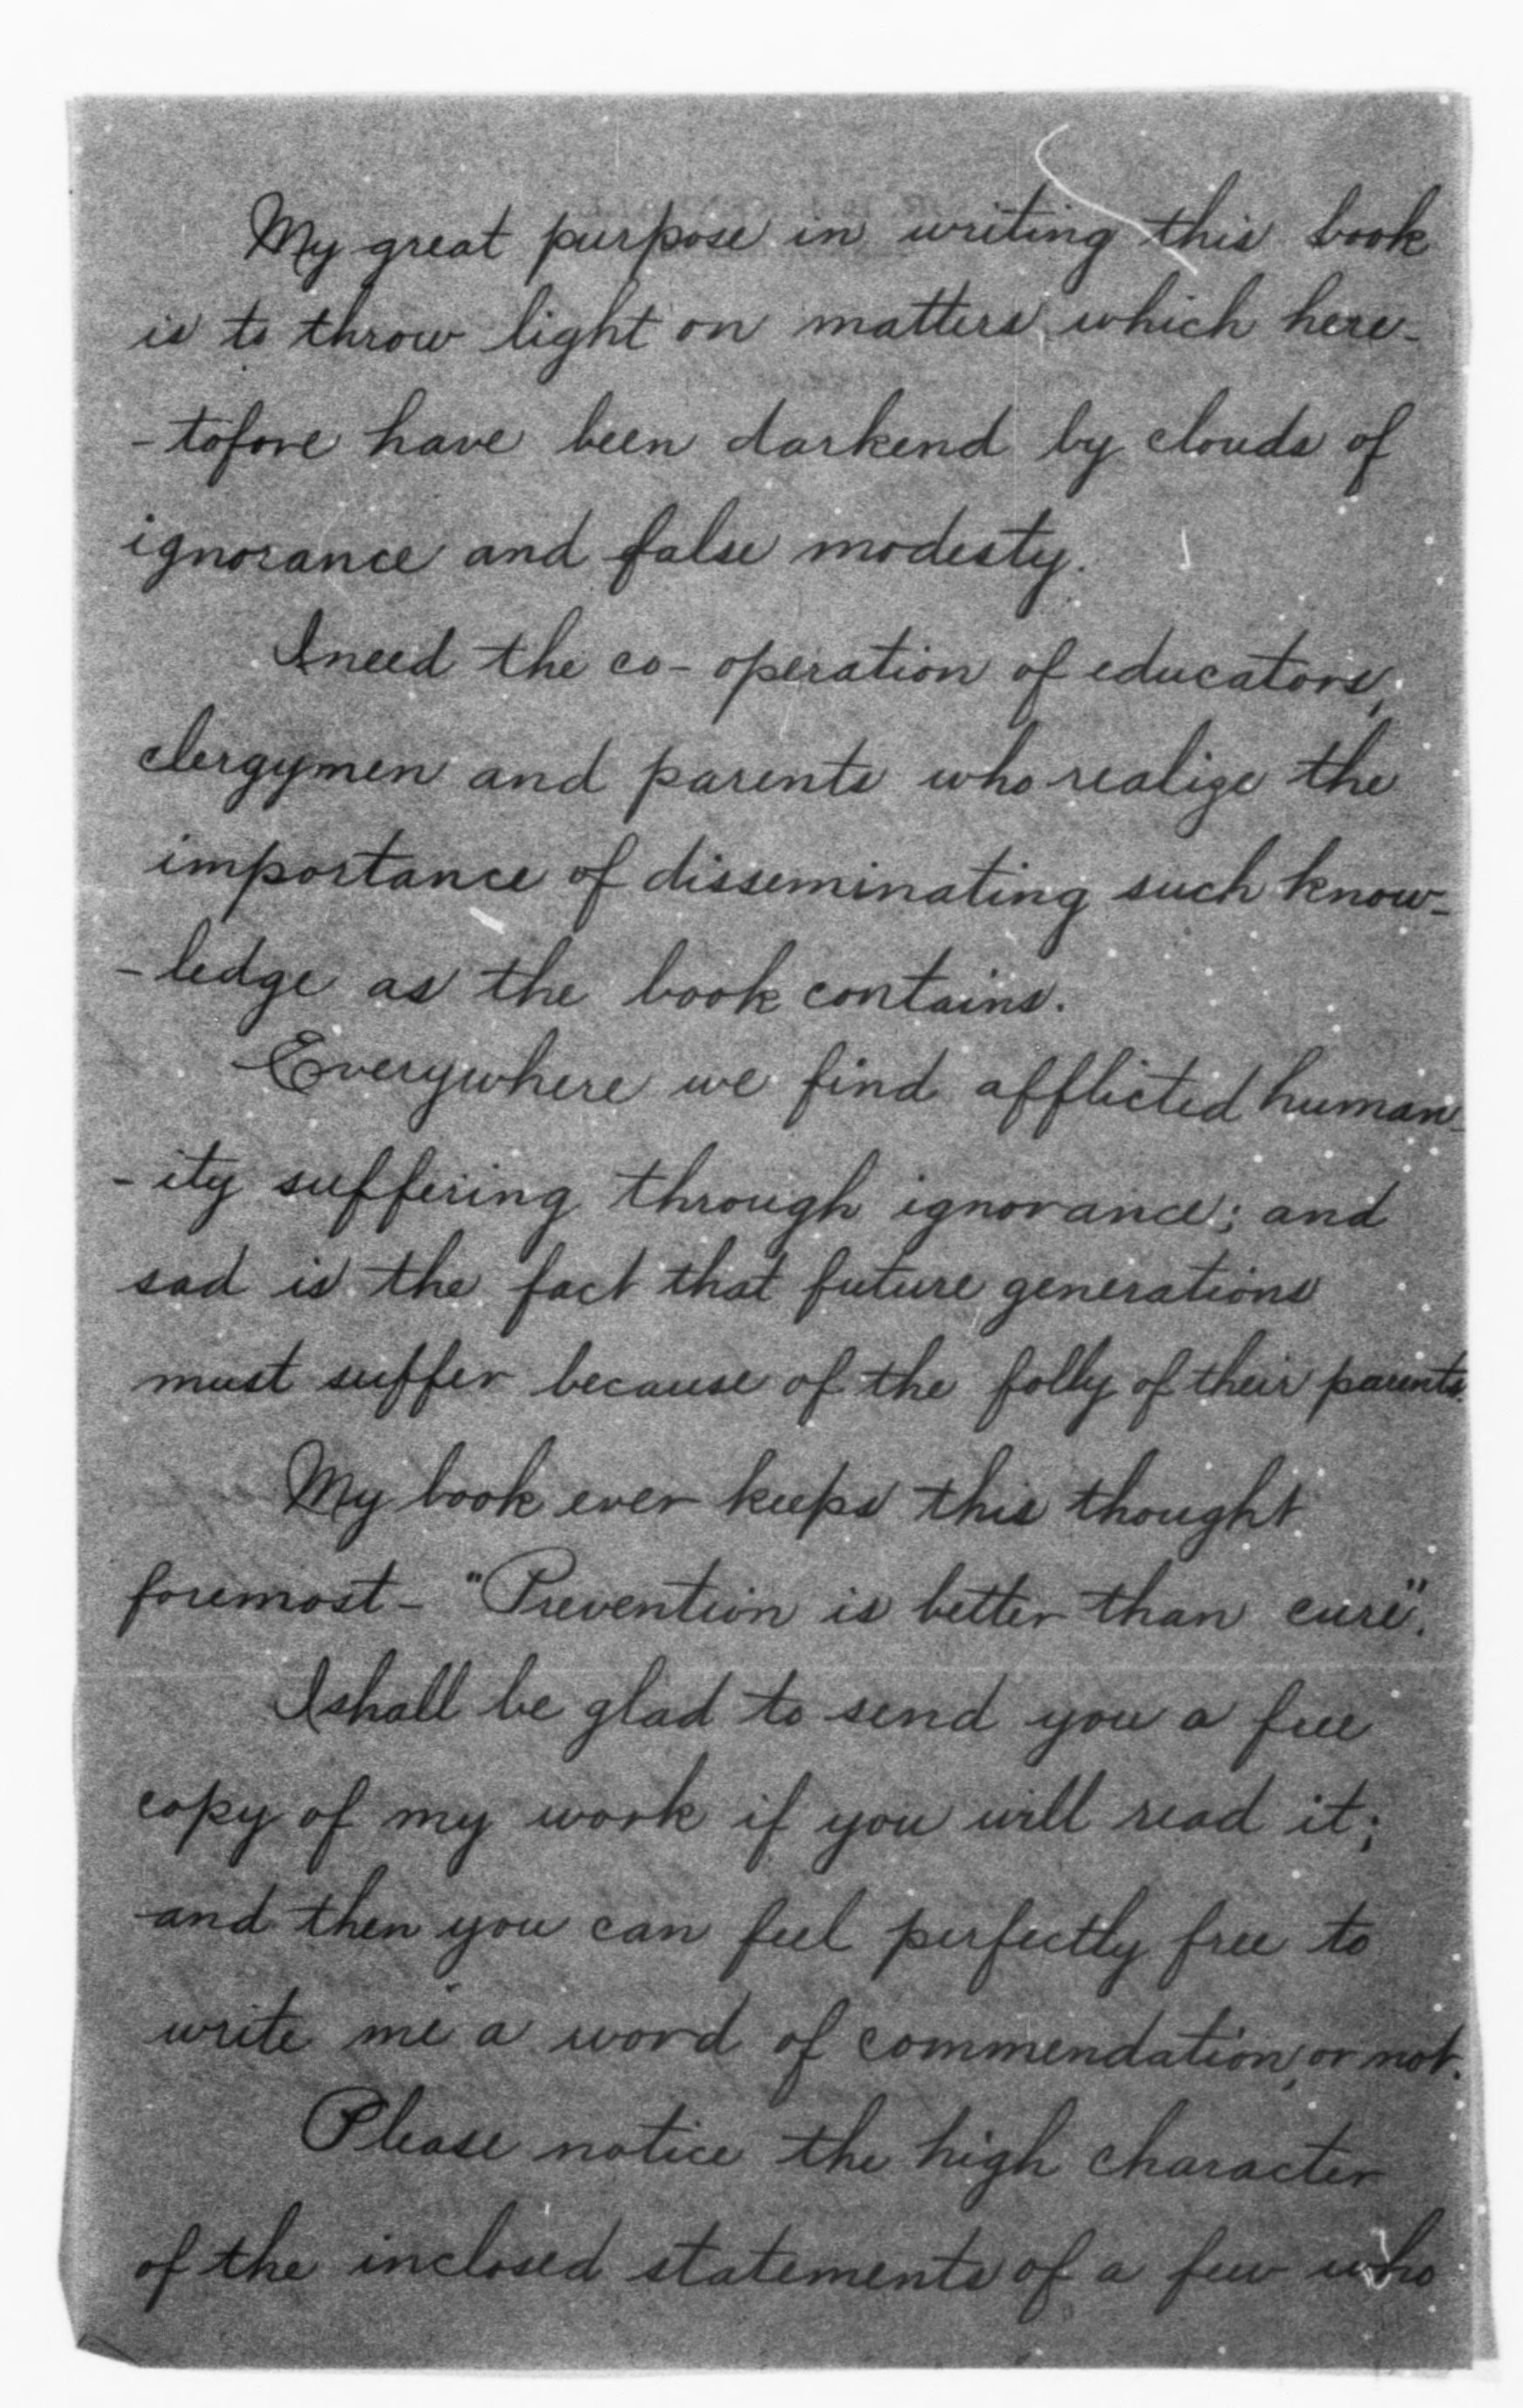 My great purpose in writing this book
is to throw light on matters which here-
-tofore have been darkend by clouds of
ignorance and false modesty.
I need the co-operation of educators,
clergymen and parents who realize the
importance of disseminating such know-
-ledge as the book contains.
Everywhere we find afflicted human-
-ity suffering through ignorance; and
sad is the fact that future generations
must suffer because of the folly of their parents.
My book ever keeps this thought
foremost - "Prevention is better than cure".
I shall be glad to send you a free
copy of my work if you will read it;
and then you can feel perfectly free to
write me a word of commendation, or not.
Please notice the high character
of the inclosed statements of a few who